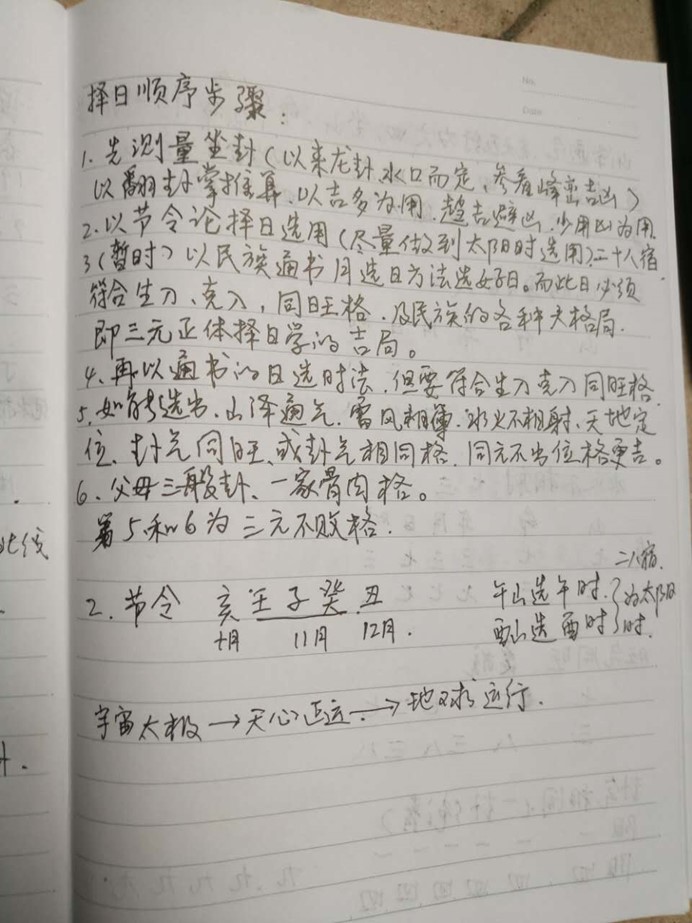 择日顺序步骤：
1. 先测量坐卦（以来龙卦.水口而定、参看峰峦吉凶）
以翻卦掌推算.以吉多为用.趋吉避凶.少用凶为用.
2. 以节令论择日选用（尽量做到太阳时选用）二十八宿.
3（暂时）以民族通书月选日方法选好日。而此日必须
符合生入、克入，同旺格.及民族的各种大格局.
即三元正体择日学的吉局。
4、再以通书的日选时法.但要符合生入克入同旺格.
5、如能选出.山泽通气.雷风相薄.水火不相射、天地定
位、卦气同旺、或卦气相同格.同元不出位格更吉。
6、父母三般卦、一家骨肉格。
第5和6为三元不败格.
二八宿.
2. 节令 亥壬子癸丑 午山选午时.}为太阳
十月 11月 12月. 酉山选酉时}时.
宇宙太极→天心正运.→地球运行.
北线